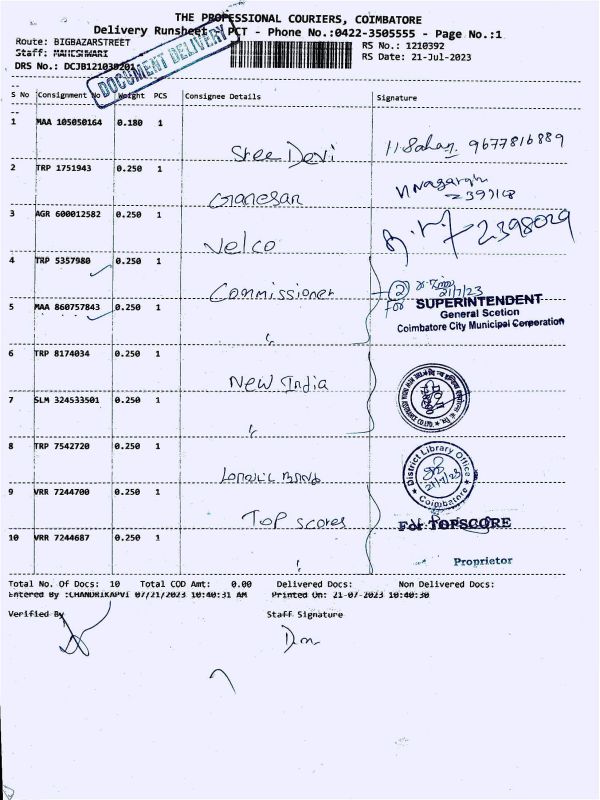 THE PROFESSIONAL COURIERS, COIMBATORE
Delivery Runsheet PCT - Phone No.:0422-3505555 - Page No.:1
Route: BIGBAZARSTREET
RS No.: 1210392
Staff: MAHESWARI
RS Date: 21-Jul-2023
DRS No.: DCJB121039201
DOCUMENT DELIVERY
S No Consignment No Weight PCS Consignee Details Signature
1 MAA 105050164 0.180 1 Sree Devi 9677816889
2 TRP 1751943 0.250 1 Ganesan
3 AGR 600012582 0.250 1 Velco 2398029
4 TRP 5357980 0.250 1 Commissioner 2 21/7/23
for SUPERINTENDENT
General Scetion
Coimbatore City Municipal Corporation
5 MAA 860757843 0.250 1 "
6 TRP 8174034 0.250 1 New India
7 SLM 324533501 0.250 1 "
8 TRP 7542720 0.250 1
District Library Office
21/7/23
Coimbatore
9 VRR 7244700 0.250 1 Top scores
For TOPSCORE
10 VRR 7244687 0.250 1
Proprietor
Total No. Of Docs: 10 Total COD Amt: 0.00 Delivered Docs: Non Delivered Docs:
Entered By :CHANDRIKAPVI 07/21/2023 10:40:31 AM Printed On: 21-07-2023 10:40:30
Verified By Staff Signature